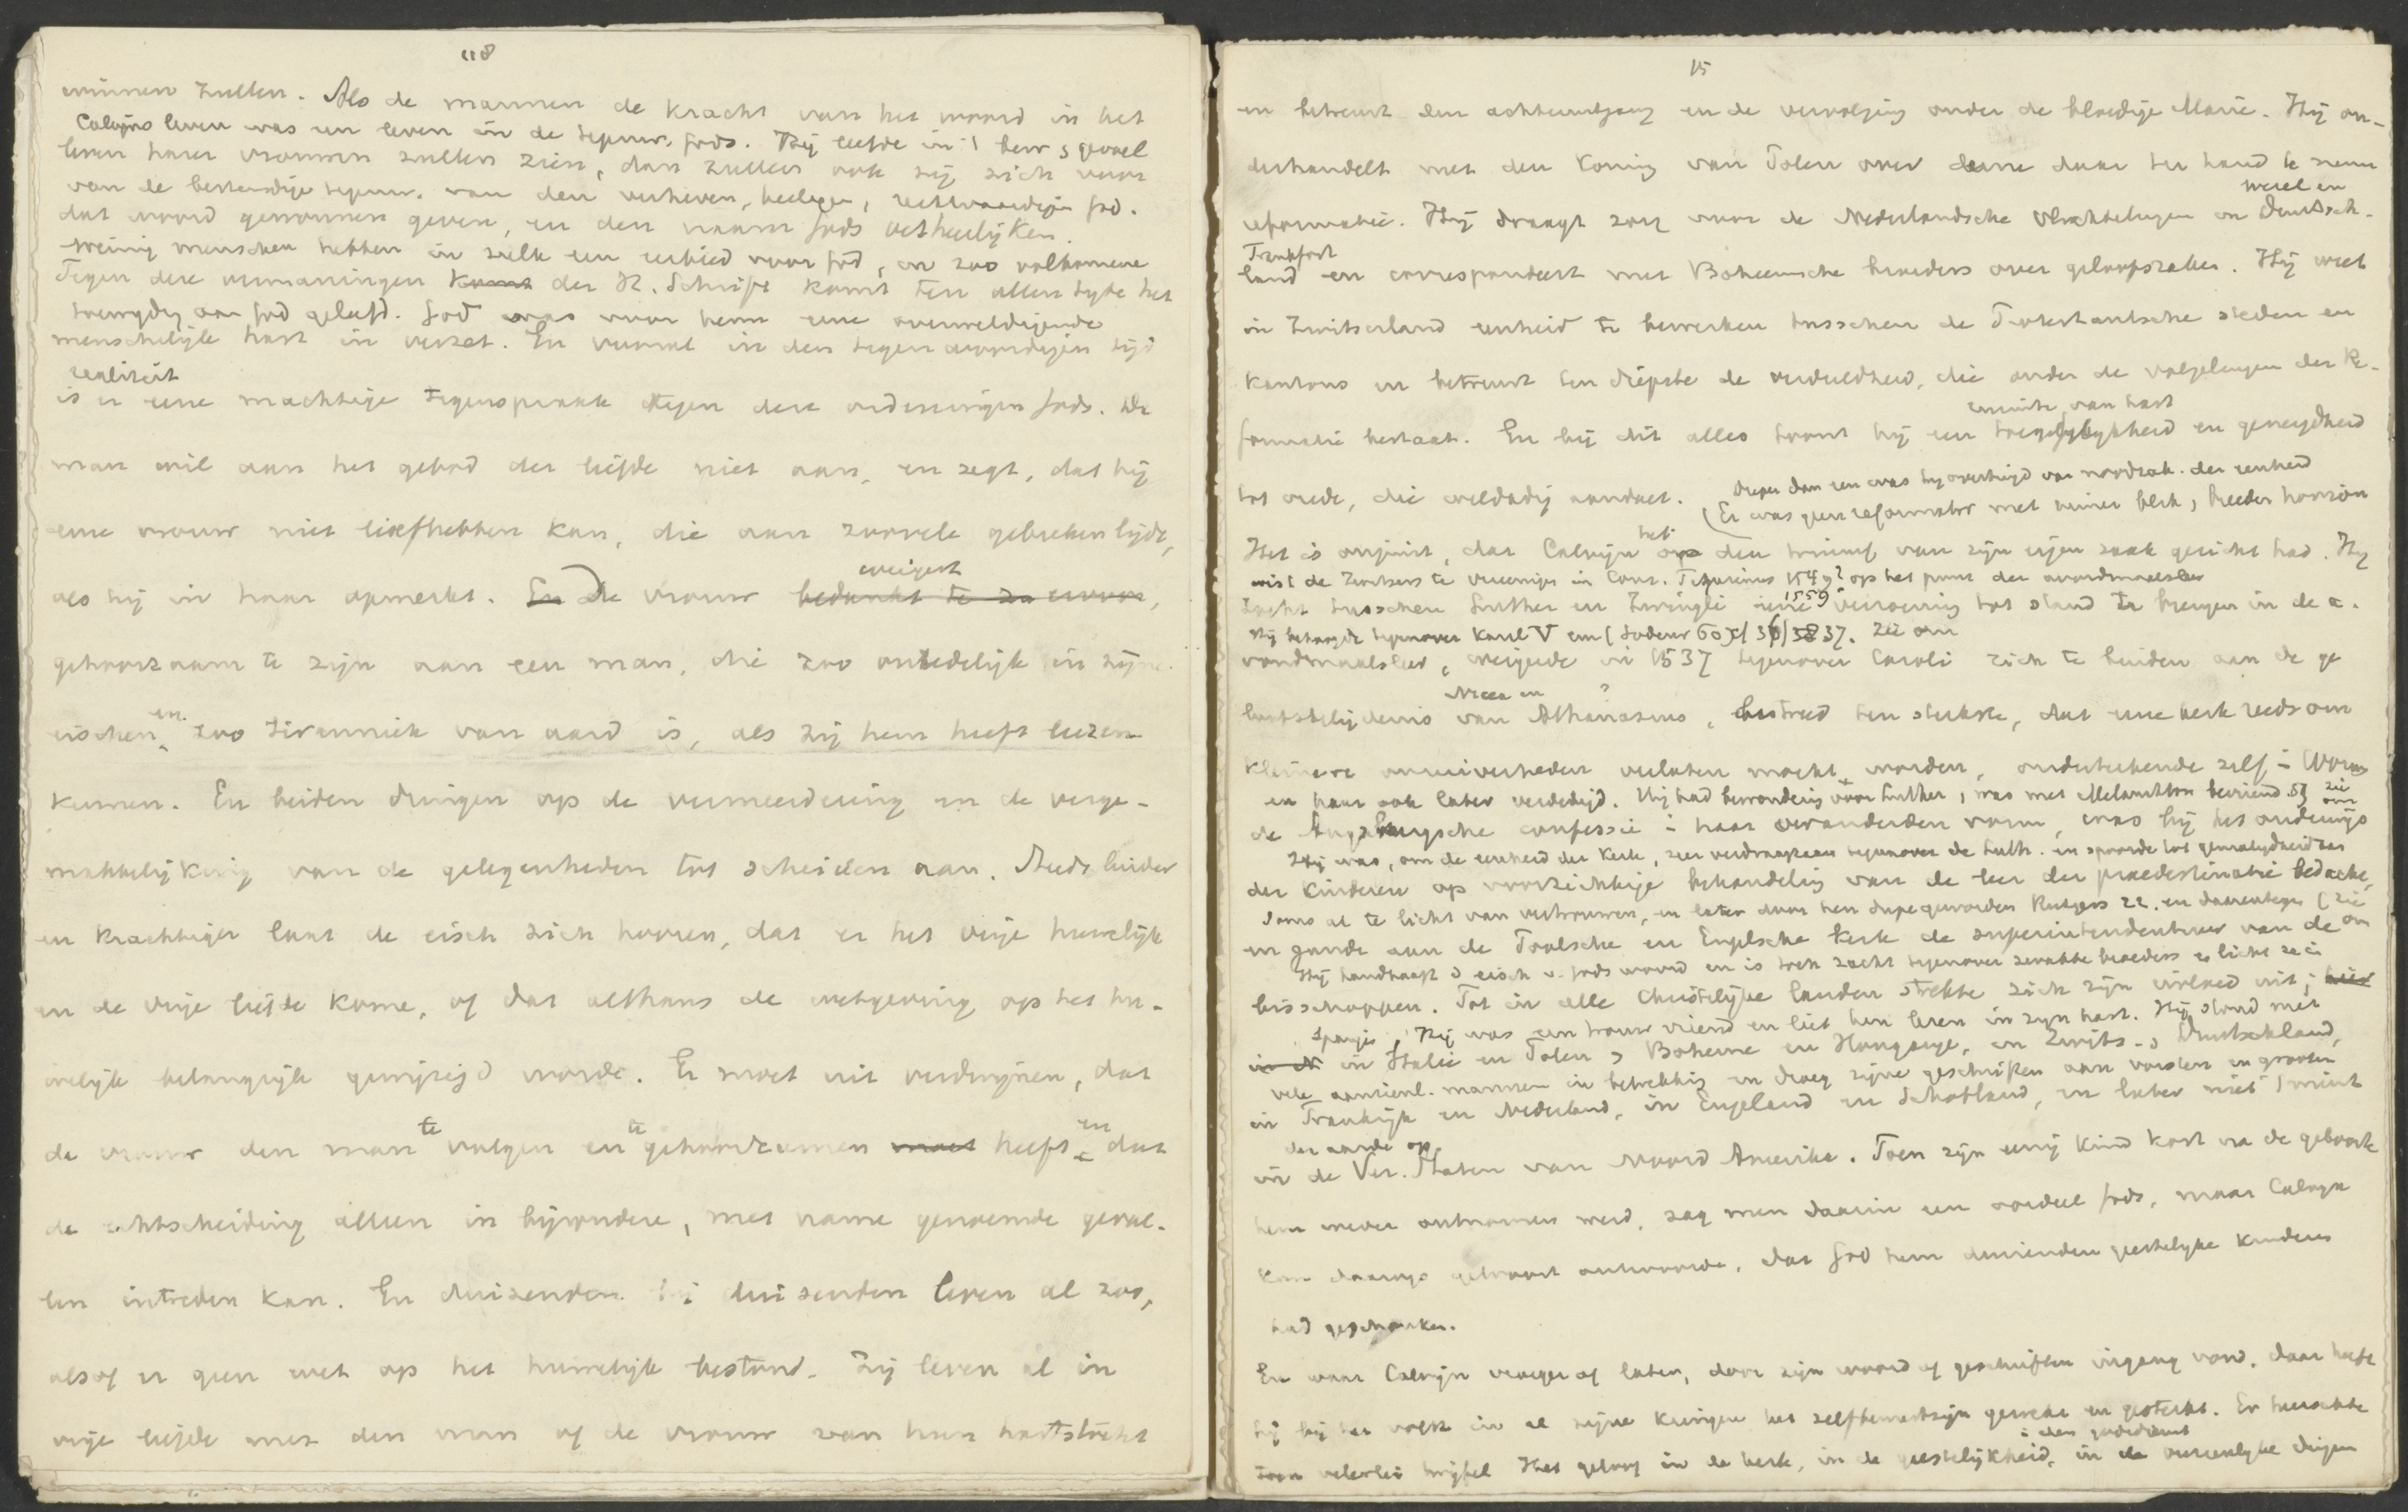 118
winnen zullen. Als de mannen de kracht van het woord in het
Calvijns leven was een leven in de tegenw. Gods. Hij leefde in 't bew. gevoel
leven harer vrouwen zullen zien, dan zullen ook zij zich voor
van de bestendige tegenw. van den verheven, heiligen, rechtvaardigen God.
dat woord gewonnen geven, en den naam Gods verheerlijken.
Weinig menschen hebben in zulk een eerbied voor God, en zoo volkomene
Tegen deze vermaningen komt der H. Schrift komt ten allen tyde het
toewyding aan God geleefd. God was voor hem eene overweldigende
menschelijke hart in verzet. En vooral in den tegenwoordigen tijd
realiteit
is er eene machtige tegenspraak tegen deze ordeningen Gods. De
man wil aan het gebod der liefde niet aan, en zegt, dat hij
eene vrouw niet liefhebben kan, die aan zoovele gebreken lijdt,
weigert
als hij in haar opmerkt. En De vrouw
gehoorzaam te zijn aan een man, die zoo onredelijk in zijne
eischen en zoo tiranniek van aard is, als zij hem heeft leeren
kennen. En beiden dringen op de vermeerdering en de verge-
makkelijking van de gelegenheden tot scheiden aan. Steeds luider
en krachtiger laat de eisch zich hooren, dat er het vrije huwelijk
en de vrije liefde kome, of dat althans de wetgeving op het hu-
welijk belangrijk gewijzigd worde. Er moet uit verdwijnen, dat
de vrouw den man te volgen en te gehoorzamen moet heeft en dat
de echtscheiding alleen in bijzondere, met name genoemde geval-
len intreden kan. En duizenden bij duizenden leven al zoo,
alsof er geen wet op het huwelijk bestond. Zij leven al in
vrije liefde met den man of de vrouw van hun hartstocht
15
en betreurt den achteruitgang en de vervolging onder de bloedige Marie. Hij on-
derhandelt met den Koning van Polen over deene daar ter hand te nemen
Wezel en
reformatie. Hij draagt zorg voor de Nederlandsche vluchtelingen in Deutsch-
Frankfort
land en correspondeert met Boheemsche broeders over geloofszaken. Hij weet
in Zwitserland eenheid te bewerken tusschen de Protestantsche steden en
kantons en betreurt ten diepste de verdeeldheid, die onder de volgelingen der Re-
van hart
formatie bestaat. En bij dit alles toont hij een toegefelykheid en geneigdheid
Dieper dan een was hy overtuigd van noodzak. der eenheid
tot vrede, die weldadig aandoet. (Er was geen reformator met ruimer blik, breeder horizon
het
Het is onjuist, dat Calvijn op den triumf van zijn eigen zaak gericht had. Hij
wist de Zwitsers te vereenigen in Cons. Tigurinus 1549? op het punt der avondmaalsleer
tracht tusschen Luther en Zwingli eene verzoening tot stand te brengen in de a-
vondmaalsleer, weigerde in 1537 tegenover Caroli zich te binden aan de ge
Nicea en ?
loofsbelijdenis van Athanasius, bestreed ten sterkste, dat eene kerk reeds om
kleinere onzuiverheden verlaten mocht worden, onderteekende zelf in Worms
en haar ook later verdedigd. Hij had bewondering voor Luther, was met Melanchton bevriend
de Augsburgsche confessie in haar veranderden vorm, was bij het onderwijs
Hij was, om de eenheid der Kerk, zeer verdraagzaam tegenover de Luth.
der kinderen op voorzichtige behandeling van de leer der praedestinatie bedacht,
en gunde aan de Poolsche en Engelsche kerk de superintendenten van de
Hij handhaaft d eisch v. Gods woord en is toch zacht tegenover zwakke broeders
bisschoppen. Tot in alle Christelijke landen strekte zich zijn invloed uit;
Spanje. Hij was een trouw vriend en liet hen leven in zyn hart. Hij stond met
in Italie en Polen, Boheme en Hongarye, in Zwits. Duitschland,
vele aanzienl. mannen in betrekking en droeg zijne geschriften aan vorsten en grooten
in Frankrijk en Nederland, in Engeland en Schotland, en later niet 't minst
der aarde op
in de Ver. Staten van Noord Amerika. Toen zijn eenig kind kort na de geboorte
hem weder ontnomen werd, zag men daarin een oordeel Gods, maar Calvyn
kon daarop getroost antwoorden, dat God hem duizenden geestelyke kinderen
had geschonken.
En waar Calvijn vroeger of later, door zijn woord of geschriften ingang vond, daar heeft
hij bij het volk in al zijne kringen het zelfbewustzijn gewekt en gesterkt. Er heerschte
in den godsdienst
toen velerlei twijfel. Het geloof in de kerk, in de geestelijkheid, in de overeenlyke dingen